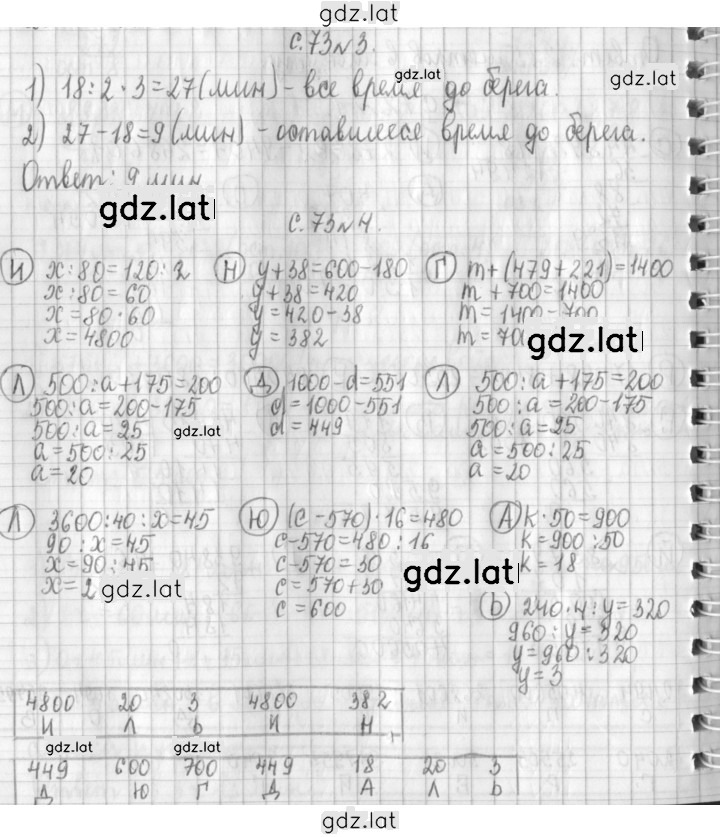 gdz.lat
с.73 №3.
gdz.lat
gdz.lat
1) 18:2·3=27(мин) - все время до берега.
2) 27-18=9(мин) - оставшееся время до берега.
Ответ: 9 мин
gdz.lat
с.73 №4.
И x:80=120:2
x:80=60
x=80·60
x=4800
Н y+38=600-180
y+38=420
y=420-38
y=382
Г m+(479+221)=1400
m+700=1400
m=1400-700
m=700
gdz.lat
Л 500:a+175=200
500:a=200-175
500:a=25
a=500:25
a=20
gdz.lat
Д 1000-d=551
d=1000-551
d=449
Л 500:a+175=200
500:a=200-175
500:a=25
a=500:25
a=20
Л 3600:40:x=45
90:x=45
x=90:45
x=2
gdz.lat
Ю (c-570)·16=480
c-570=480:16
c-570=30
c=570+30
c=600
gdz.lat
А k·50=900
k=900:50
k=18
Ь 240·4:y=320
960:y=320
y=960:320
y=3
4800 20 3 4800 382
И Л Ь И Н
gdz.lat gdz.lat
449 600 700 449 18 20 3
Д Ю Г Д А Л Ь
gdz.lat